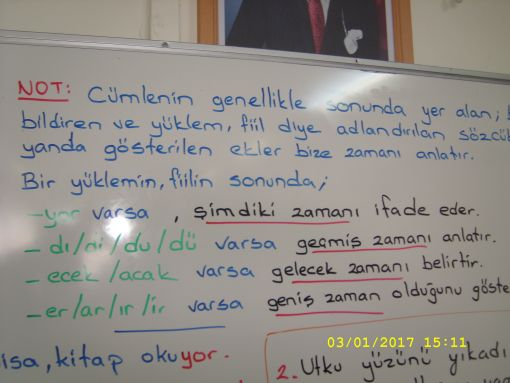 NOT: Cümlenin genellikle sonunda yer alan;
bildiren ve yüklem, fiil diye adlandırılan
yanda gösterilen ekler bize zamanı anlatır.
Bir yüklemin, fiilin sonunda;
-yor varsa , şimdiki zamanı ifade eder.
- dı/di/du/dü varsa geçmiş zamanı anlatır.
- ecek/acak varsa gelecek zamanı belirtir.
- er/ar/ır/ir varsa geniş zaman olduğunu
kitap okuyor.
2. Utku yüzünü yıkadı
03/01/2017 15:11